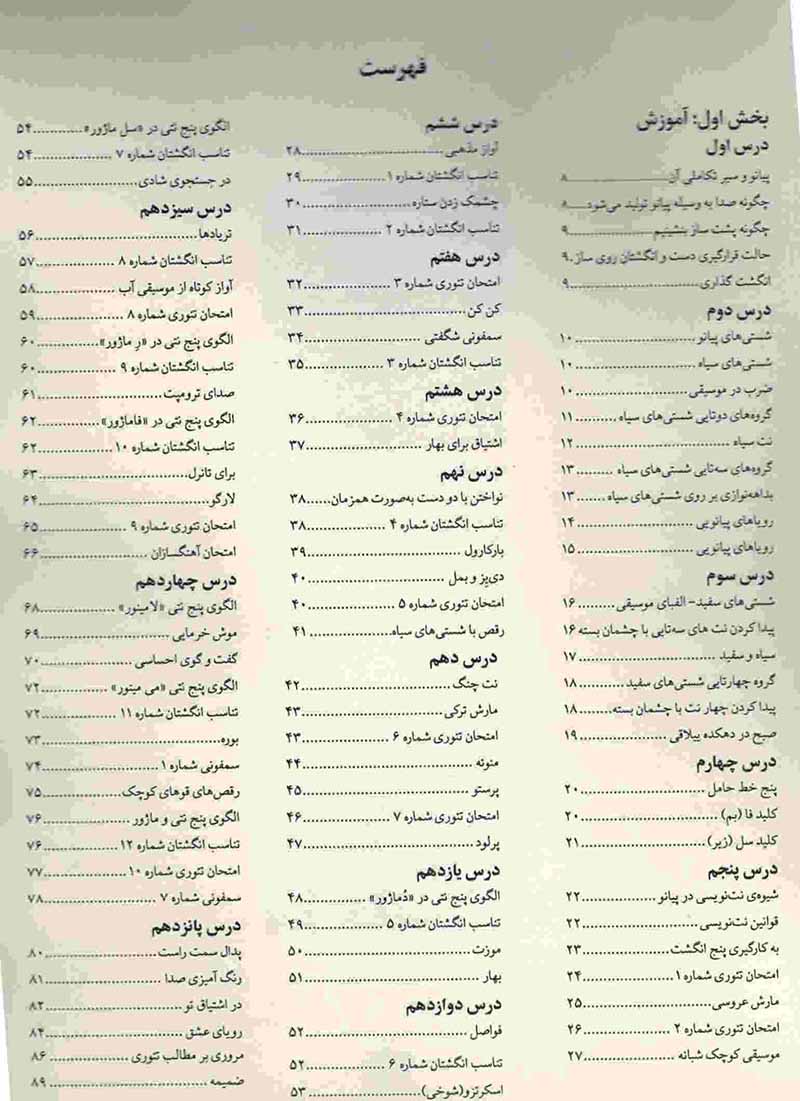 فهرست
بخش اول: آموزش
درس اول
پیانو و سیر تکاملی آن ........ ۸
چگونه صدا به وسیله پیانو تولید می‌شود ........ ۸
چگونه پشت ساز بنشینیم ........ ۹
حالت قرارگیری دست و انگشتان روی ساز . ۹
انگشت گذاری ........ ۹
درس دوم
شستی‌های پیانو ........ ۱۰
شستی‌های سیاه ........ ۱۰
ضرب در موسیقی ........ ۱۰
گروه‌های دوتایی شستی‌های سیاه ........ ۱۱
نت سیاه ........ ۱۲
گروه‌های سه‌تایی شستی‌های سیاه ........ ۱۳
بداهه‌نوازی بر روی شستی‌های سیاه ........ ۱۳
رویاهای پیانویی ........ ۱۴
رویاهای پیانویی ........ ۱۵
درس سوم
شستی‌های سفید- الفبای موسیقی ........ ۱۶
پیدا کردن نت های سه‌تایی با چشمان بسته ۱۶
سیاه و سفید ........ ۱۷
گروه چهارتایی شستی‌های سفید ........ ۱۸
پیدا کردن چهار نت با چشمان بسته ........ ۱۸
صبح در دهکده ییلاقی ........ ۱۹
درس چهارم
پنج خط حامل ........ ۲۰
کلید فا (بم) ........ ۲۰
کلید سل (زیر) ........ ۲۱
درس پنجم
شیوه‌ی نت‌نویسی در پیانو ........ ۲۲
قوانین نت‌نویسی ........ ۲۲
به کارگیری پنج انگشت ........ ۲۳
امتحان تئوری شماره ۱ ........ ۲۴
مارش عروسی ........ ۲۵
امتحان تئوری شماره ۲ ........ ۲۶
موسیقی کوچک شبانه ........ ۲۷
درس ششم
آواز مذهبی ........ ۲۸
تناسب انگشتان شماره ۱ ........ ۲۹
چشمک زدن ستاره ........ ۳۰
تناسب انگشتان شماره ۲ ........ ۳۱
درس هفتم
امتحان تئوری شماره ۳ ........ ۳۲
کن کن ........ ۳۳
سمفونی شگفتی ........ ۳۴
تناسب انگشتان شماره ۳ ........ ۳۵
درس هشتم
امتحان تئوری شماره ۴ ........ ۳۶
اشتیاق برای بهار ........ ۳۷
درس نهم
نواختن با دو دست به‌صورت همزمان ........ ۳۸
تناسب انگشتان شماره ۴ ........ ۳۸
بارکارول ........ ۳۹
دی‌یز و بمل ........ ۴۰
امتحان تئوری شماره ۵ ........ ۴۰
رقص با شستی‌های سیاه ........ ۴۱
درس دهم
نت چنگ ........ ۴۲
مارش ترکی ........ ۴۳
امتحان تئوری شماره ۶ ........ ۴۳
منوئه ........ ۴۴
پرستو ........ ۴۵
امتحان تئوری شماره ۷ ........ ۴۶
پرلود ........ ۴۷
درس یازدهم
الگوی پنج نتی در «دُماژور» ........ ۴۸
تناسب انگشتان شماره ۵ ........ ۴۹
موزت ........ ۵۰
بهار ........ ۵۱
درس دوازدهم
فواصل ........ ۵۲
تناسب انگشتان شماره ۶ ........ ۵۲
اسکرتزو(شوخی) ........ ۵۳
الگوی پنج نتی در «سل ماژور» ........ ۵۴
تناسب انگشتان شماره ۷ ........ ۵۴
در جستجوی شادی ........ ۵۵
درس سیزدهم
تریادها ........ ۵۶
تناسب انگشتان شماره ۸ ........ ۵۷
آواز کوتاه از موسیقی آب ........ ۵۸
امتحان تئوری شماره ۸ ........ ۵۹
الگوی پنج نتی در «رِ ماژور» ........ ۶۰
تناسب انگشتان شماره ۹ ........ ۶۰
صدای ترومپت ........ ۶۱
الگوی پنج نتی در «فاماژور» ........ ۶۲
تناسب انگشتان شماره ۱۰ ........ ۶۲
برای تانرل ........ ۶۳
لارگو ........ ۶۴
امتحان تئوری شماره ۹ ........ ۶۵
امتحان آهنگسازان ........ ۶۶
درس چهاردهم
الگوی پنج نتی «لامینور» ........ ۶۸
موش خرمایی ........ ۶۹
گفت و گوی احساسی ........ ۷۰
الگوی پنج نتی «می مینور» ........ ۷۲
تناسب انگشتان شماره ۱۱ ........ ۷۲
بوره ........ ۷۳
سمفونی شماره ۱ ........ ۷۴
رقص‌های قوهای کوچک ........ ۷۵
الگوی پنج نتی و ماژور ........ ۷۶
تناسب انگشتان شماره ۱۲ ........ ۷۶
امتحان تئوری شماره ۱۰ ........ ۷۷
سمفونی شماره ۷ ........ ۷۸
درس پانزدهم
پدال سمت راست ........ ۸۰
رنگ آمیزی صدا ........ ۸۱
در اشتیاق تو ........ ۸۲
رویای عشق ........ ۸۴
مروری بر مطالب تئوری ........ ۸۶
ضمیمه ........ ۸۹